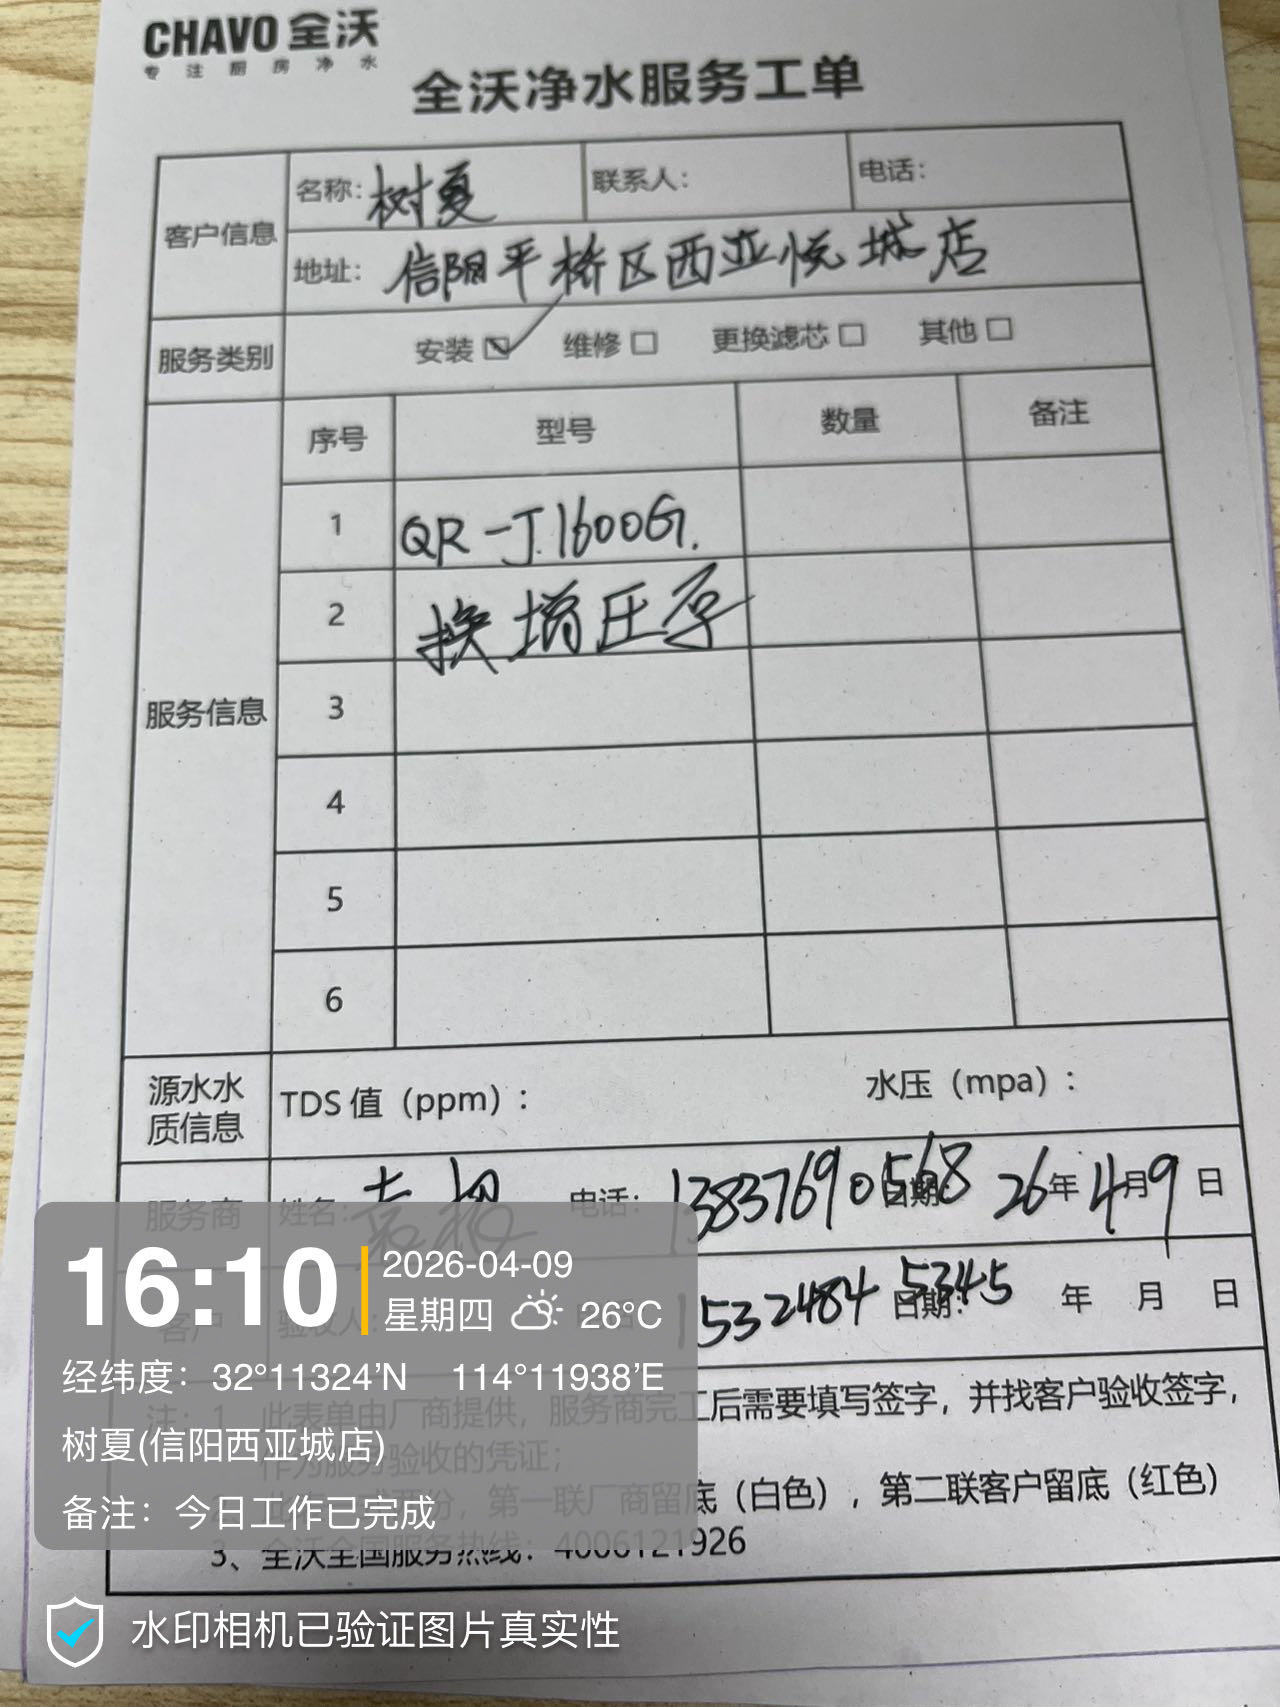 CHAVO 全沃
专注厨房净水
全沃净水服务工单
客户信息 名称：树夏 联系人： 电话：
地址：信阳平桥区西亚悦城店
服务类别 安装☑ 维修□ 更换滤芯□ 其他□
服务信息 序号 型号 数量 备注
1 QR-J1600G.
2 换增压泵
3
4
5
6
源水水质信息 TDS 值（ppm）： 水压（mpa）：
服务商 姓名： 电话：13837690568 日期 26年4月9日
客户 验收人： 15324845345 日期： 年 月 日
注：1、此表单由厂商提供，服务商完工后需要填写签字，并找客户验收签字，
作为服务验收的凭证；
第一联厂商留底（白色），第二联客户留底（红色）
3、全沃全国服务热线：4006121926
16:10
2026-04-09
星期四 26°C
经纬度：32°11324'N 114°11938'E
树夏(信阳西亚城店)
备注：今日工作已完成
水印相机已验证图片真实性